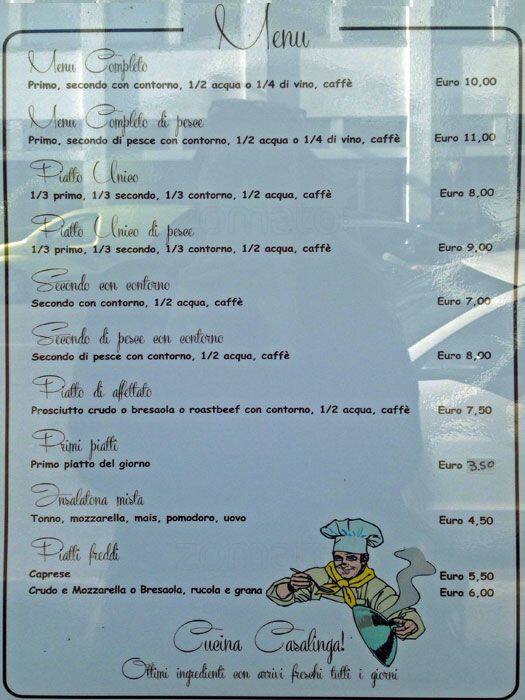 Menu
Menu Completo
Primo, secondo con contorno, 1/2 acqua o 1/4 di vino, caffè Euro 10,00
Menu Completo di pesce
Primo, secondo di pesce con contorno, 1/2 acqua o 1/4 di vino, caffè Euro 11,00
Piatto Unico
1/3 primo, 1/3 secondo, 1/3 contorno, 1/2 acqua, caffè Euro 8,00
Piatto Unico di pesce
1/3 primo, 1/3 secondo, 1/3 contorno, 1/2 acqua, caffè Euro 9,00
Secondo con contorno
Secondo con contorno, 1/2 acqua, caffè Euro 7,00
Secondo di pesce con contorno
Secondo di pesce con contorno, 1/2 acqua, caffè Euro 8,00
Piatto di affettato
Prosciutto crudo o bresaola o roastbeef con contorno, 1/2 acqua, caffè Euro 7,50
Primi piatti
Primo piatto del giorno Euro 3.50
Insalatona mista
Tonno, mozzarella, mais, pomodoro, uovo Euro 4,50
Piatti freddi
Caprese Euro 5,50
Crudo e Mozzarella o Bresaola, rucola e grana Euro 6,00
Cucina Casalinga!
Ottimi ingredienti con arrivi freschi tutti i giorni